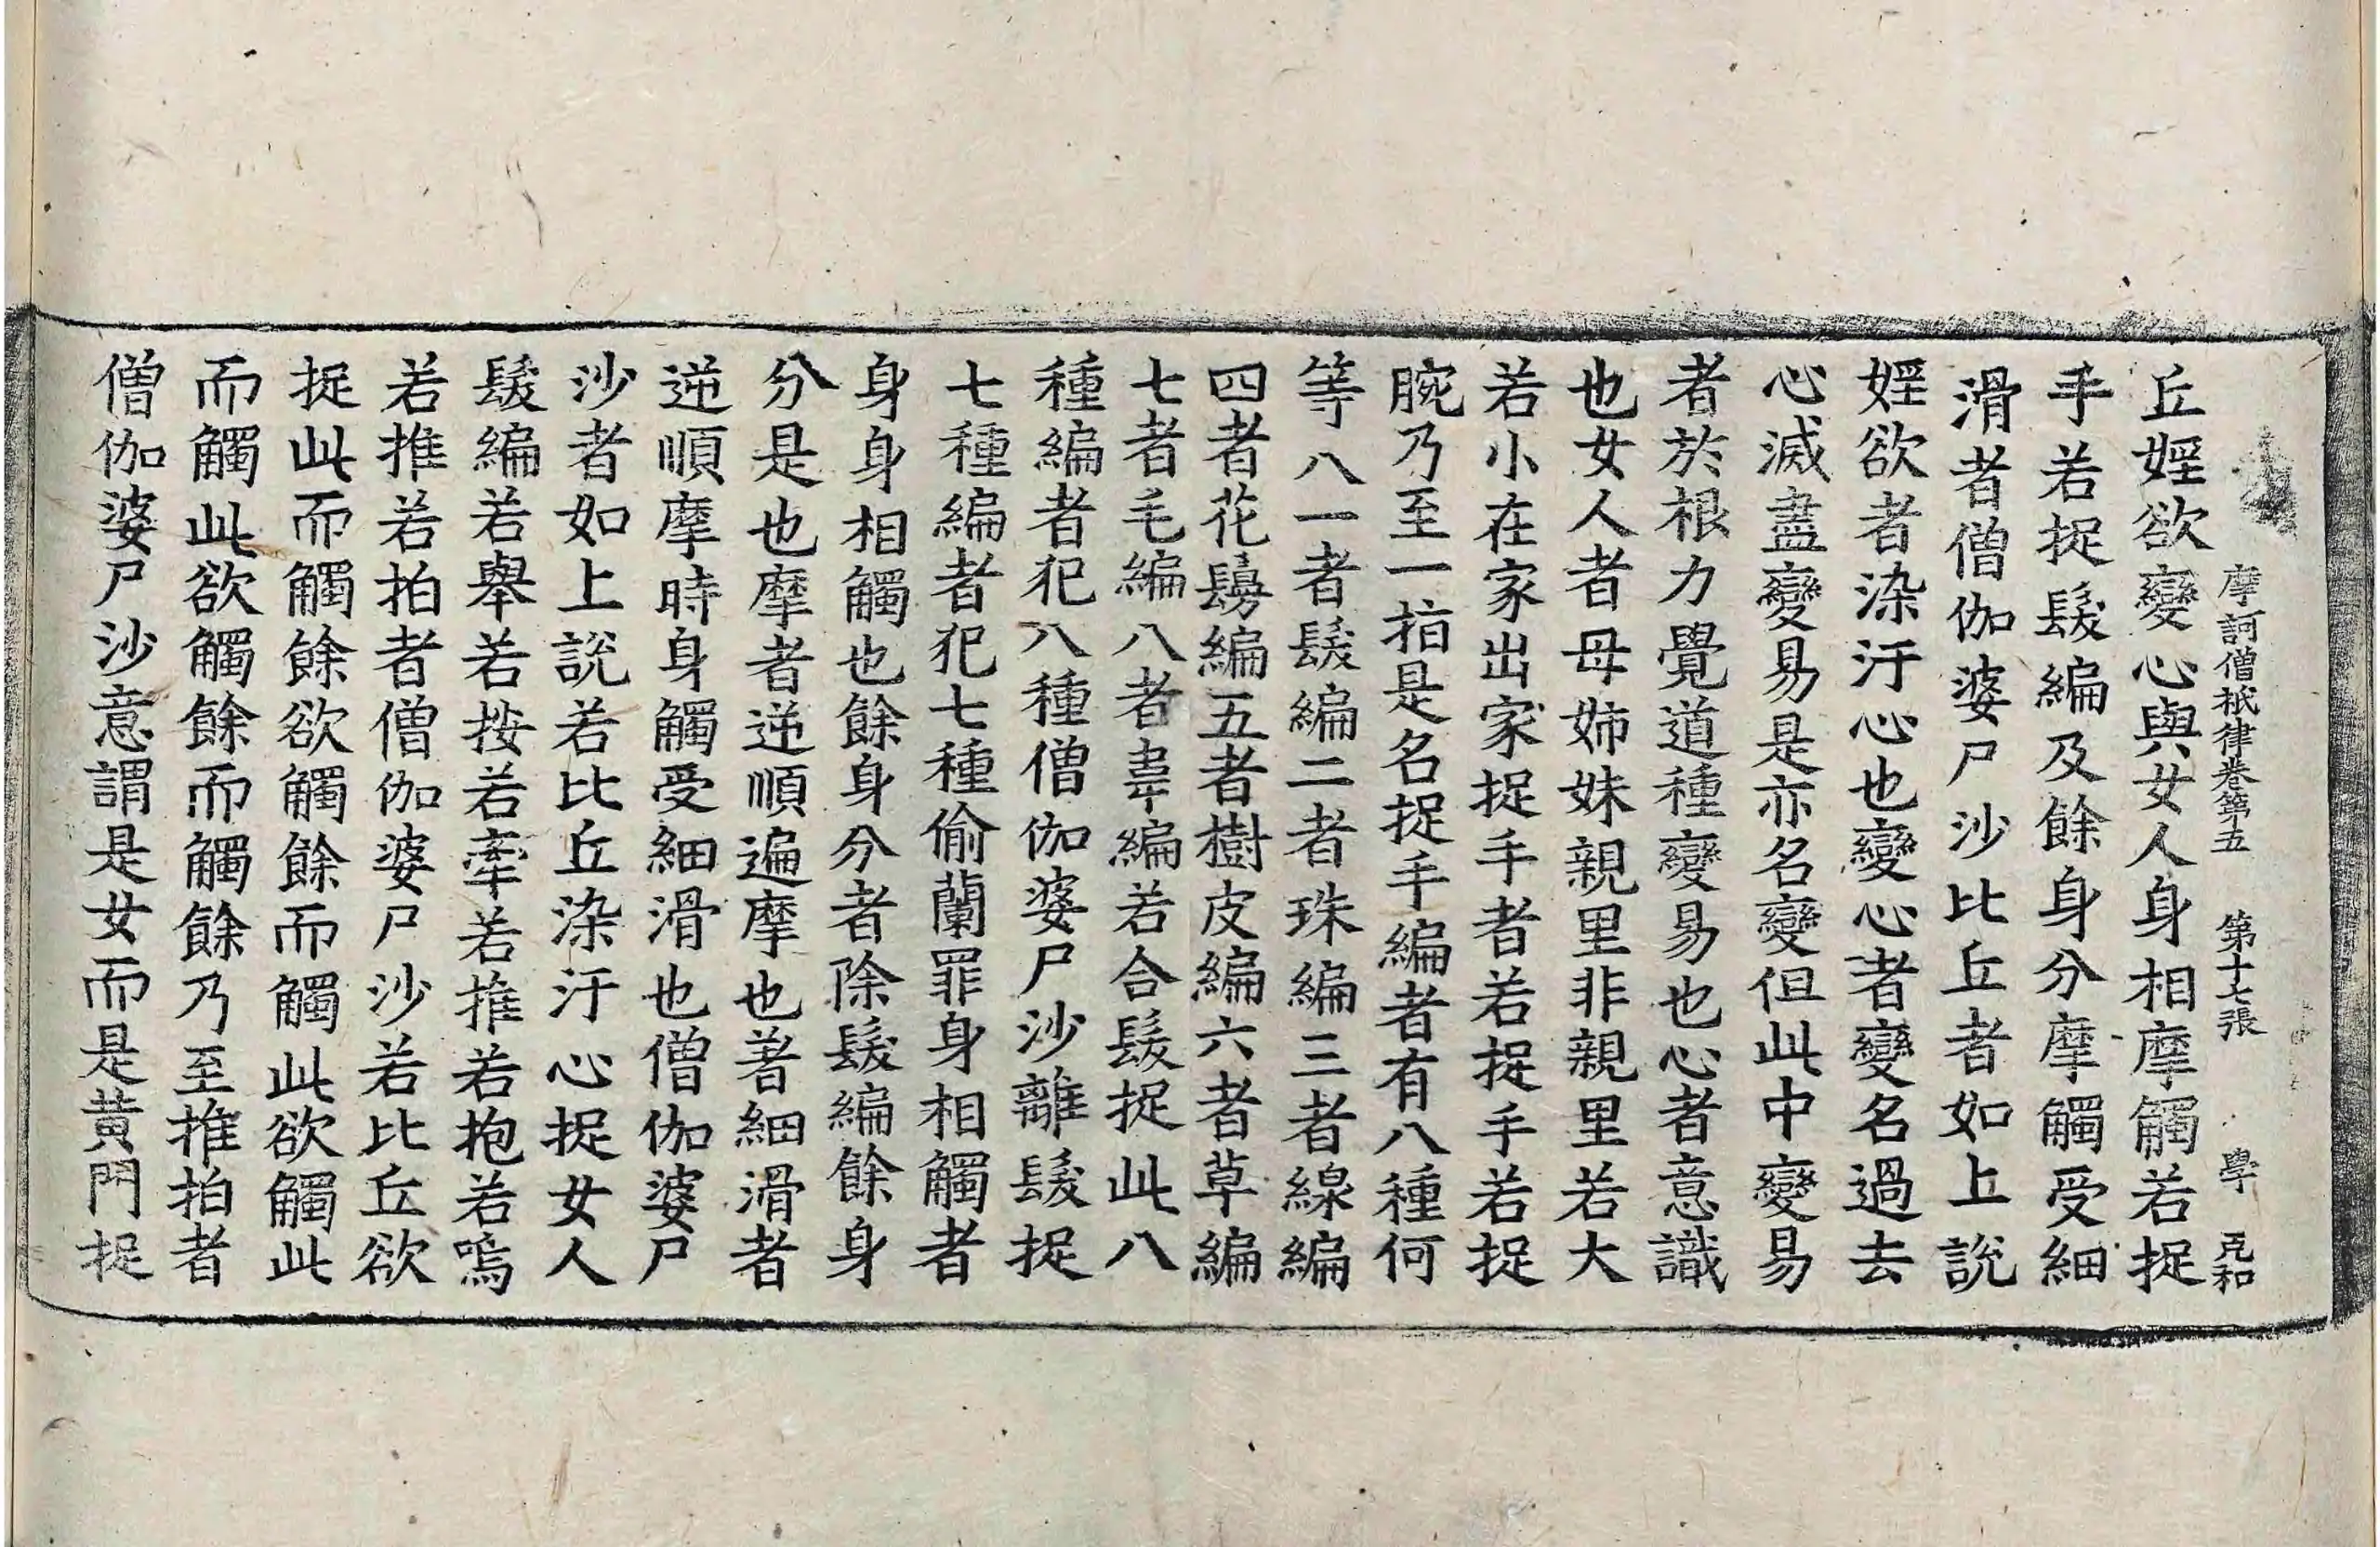 摩訶僧祇律卷第五 第十七張 學 元和
丘婬欲變心與女人身相摩觸若捉
手若捉髮編及餘身分摩觸受細
滑者僧伽婆尸沙比丘者如上說
婬欲者染汙心也變心者變名過去
心滅盡變易是亦名變但此中變易
者於根力覺道種變易也心者意識
也女人者母姉妹親里非親里若大
若小在家出家捉手者若捉手若捉
腕乃至一指是名捉手編者有八種何
等八一者髮編二者珠編三者線編
四者花鬘編五者樹皮編六者草編
七者毛編八者韋編若合髮捉此八
種編者犯八種僧伽婆尸沙離髮捉
七種編者犯七種偷蘭罪身相觸者
身身相觸也餘身分者除髮編餘身
分是也摩者逆順遍摩也著細滑者
逆順摩時身觸受細滑也僧伽婆尸
沙者如上說若比丘染汙心捉女人
髮編若舉若按若牽若推若抱若嗚
若推若拍者僧伽婆尸沙若比丘欲
捉此而觸餘欲觸餘而觸此欲觸此
而觸此欲觸餘而觸餘乃至推拍者
僧伽婆尸沙意謂是女而是黃門捉